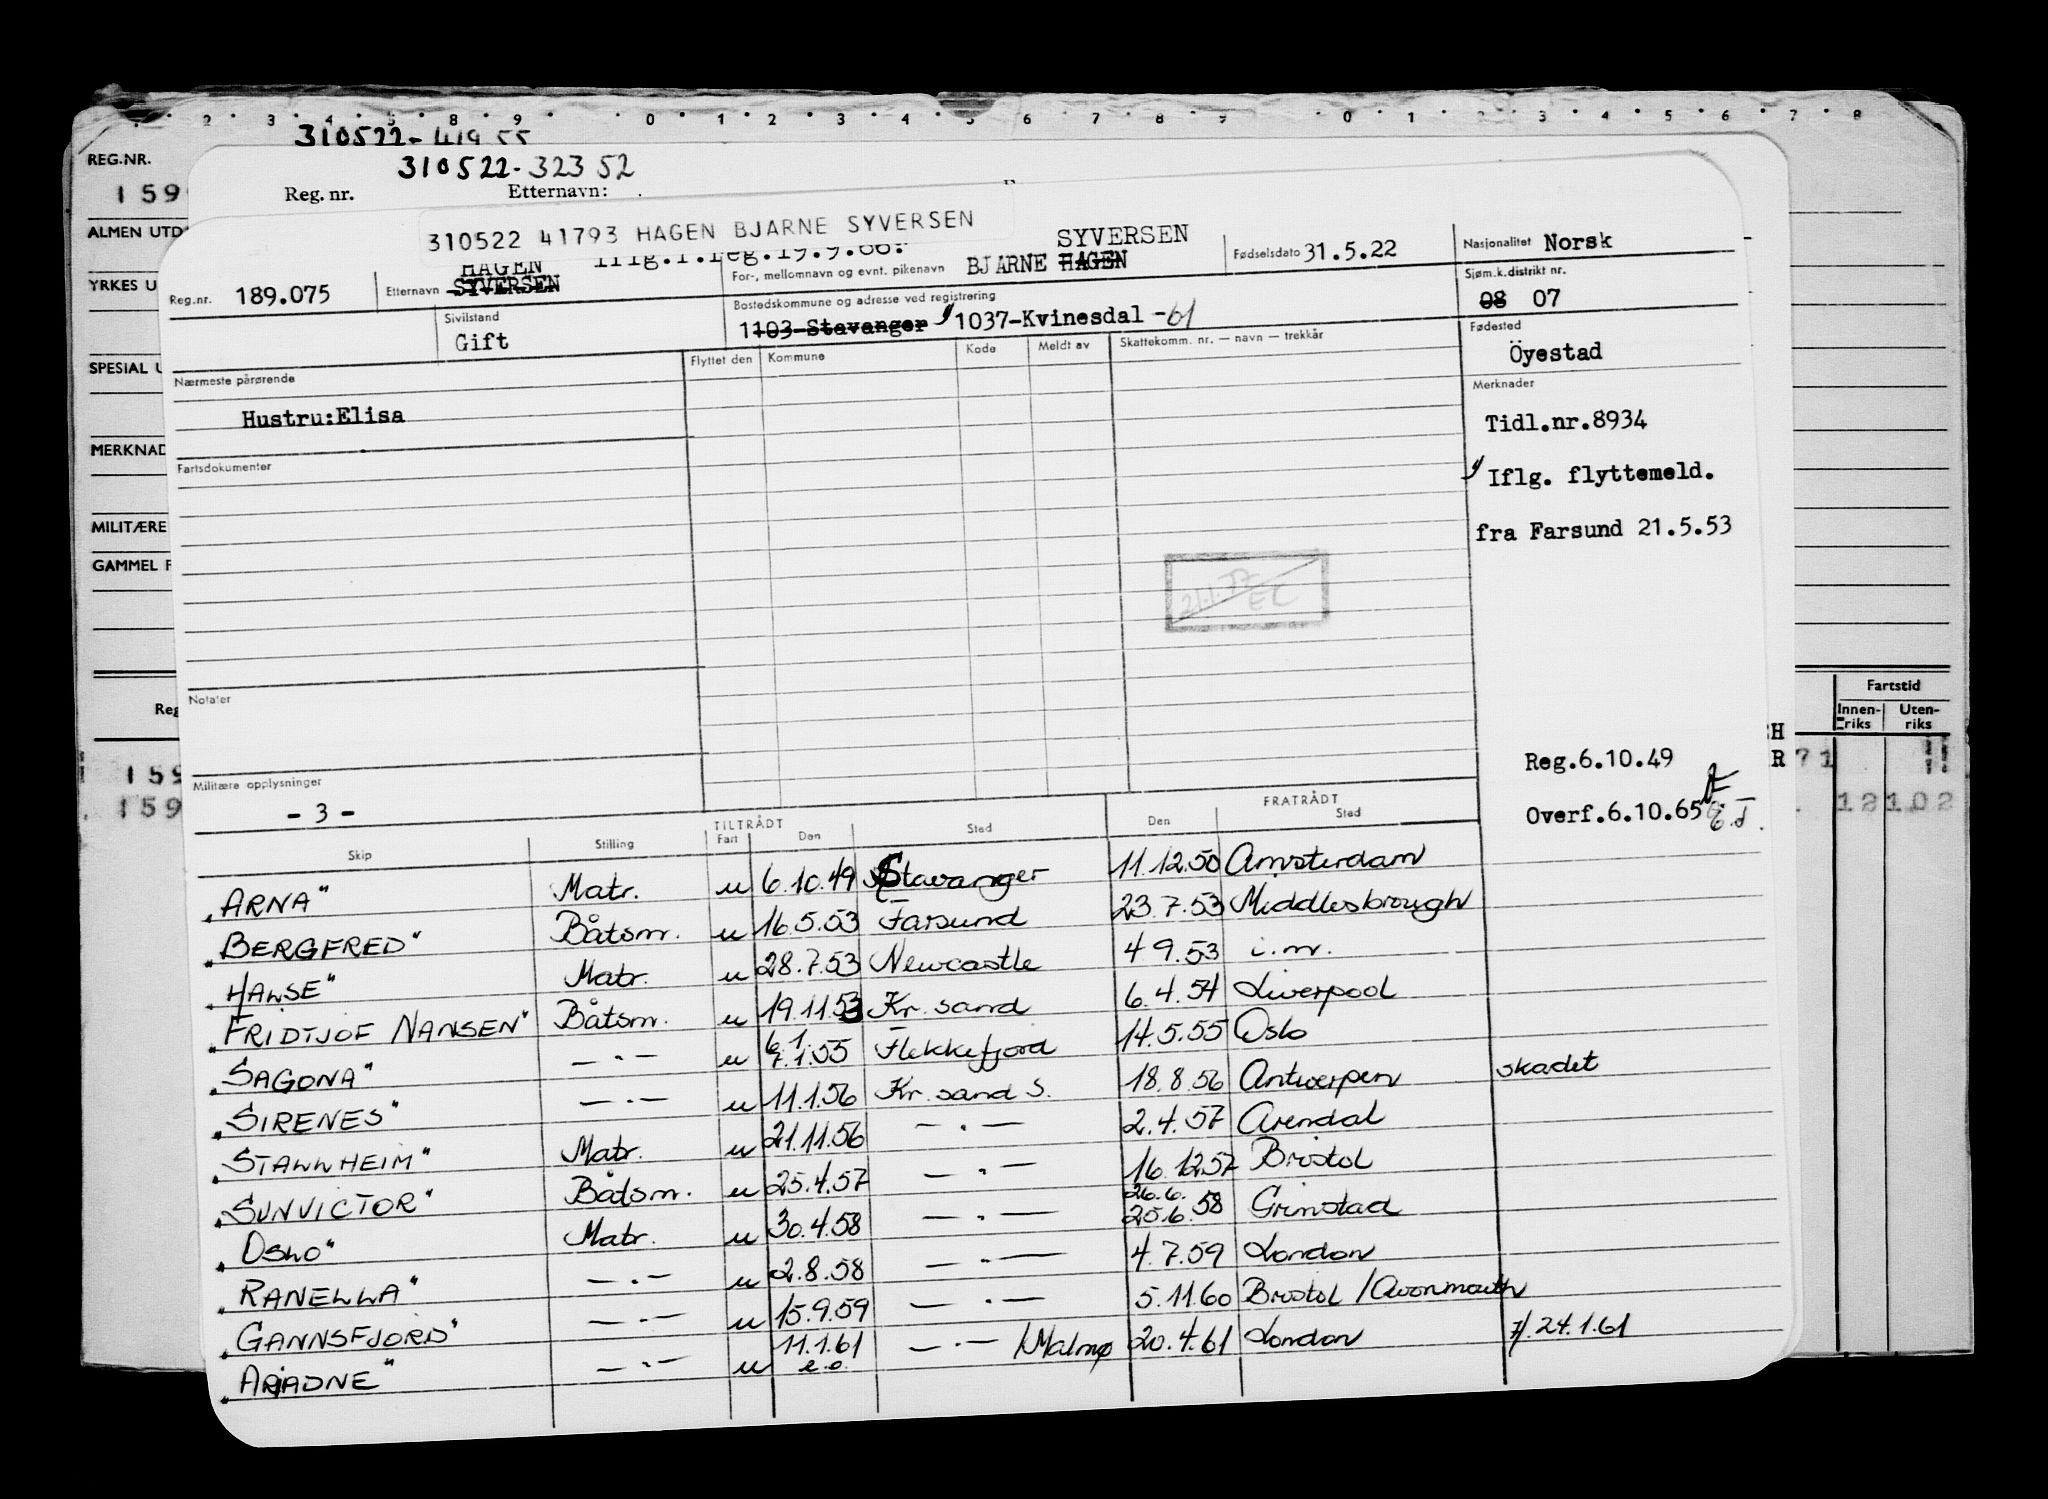 2 3 4 5 8 9 0 1 2 3 4 5 6 7 8 9 0 1 2 3 4 5 6 7 8
310522-419 55
REG.NR.
310522-323 52
159
Reg. nr. Etternavn:
ALMEN UTD
310522 41793 HAGEN BJARNE SYVERSEN
Iflg.f.reg.19.9.66.
HAGEN SYVERSEN
Reg.nr. 189.075 Etternavn SYVERSEN For-, mellomnavn og evnt. pikenavn BJARNE HAGEN Fødselsdato 31.5.22 Nasjonalitet Norsk
YRKES U
Sivilstand Bostedskommune og adresse ved registrering Sjøm.k.distrikt nr.
Gift 1103-Stavanger 1037-Kvinesdal -61 08 07
Fødested
Öyestad
SPESIAL U
Nærmeste pårørende Flyttet den Kommune Kode Meldt av Skattekomm. nr. — navn — trekkår
Merknader
Hustru:Elisa
Tidl.nr.8934
MERKNAD
Fartsdokumenter
Iflg. flyttemeld.
MILITÆRE
fra Farsund 21.5.53
GAMMEL F
21.1.77
EC
Notater
Reg
Fartstid
Innen-riks Uten-riks
H
R 71 11
159
Reg.6.10.49
Militære opplysninger
- 3 -
159
Overf.6.10.65 12102
TILTRÅDT FRATRÅDT
Skip Stilling Fart Den Sted Den Sted
"ARNA" Matr. u 6.10.49 Stavanger 11.12.50 Amsterdam
"BERGFRED" Båtsm. u 16.5.53 Farsund 23.7.53 Middlesbrough
"HALSE" Matr. u 28.7.53 Newcastle 4 9.53 i.m.
"FRIDTJOF NANSEN" Båtsm. u 19.11.53 Kr. sand 6.4.54 Liverpool
6.1.
"SAGONA" — · — u 7.1.55 Flekkefjord 14.5.55 Oslo
"SIRENES" — · — u 11.1.56 Kr. sand S. 18.8.56 Antwerpen skadet
"STALLHEIM" Matr. u 21.11.56 — · — 2.4.57 Arendal
"SUNVICTOR" Båtsm. u 25.4.57 — · — 16.12.57 Bristol
26.6.
"OSLO" Matr. u 30.4.58 — · — 25.6.58 Grimstad
"RANELLA" — · — u 2.8.58 — · — 4.7.59 London
"GANNSFJORD" — · — u 15.9.59 — · — 5.11.60 Bristol /Avonmouth
"ARIADNE" — · — u 11.1.61 — · — /Malmø 20.4.61 London 7/. 24.1.61
e.o.